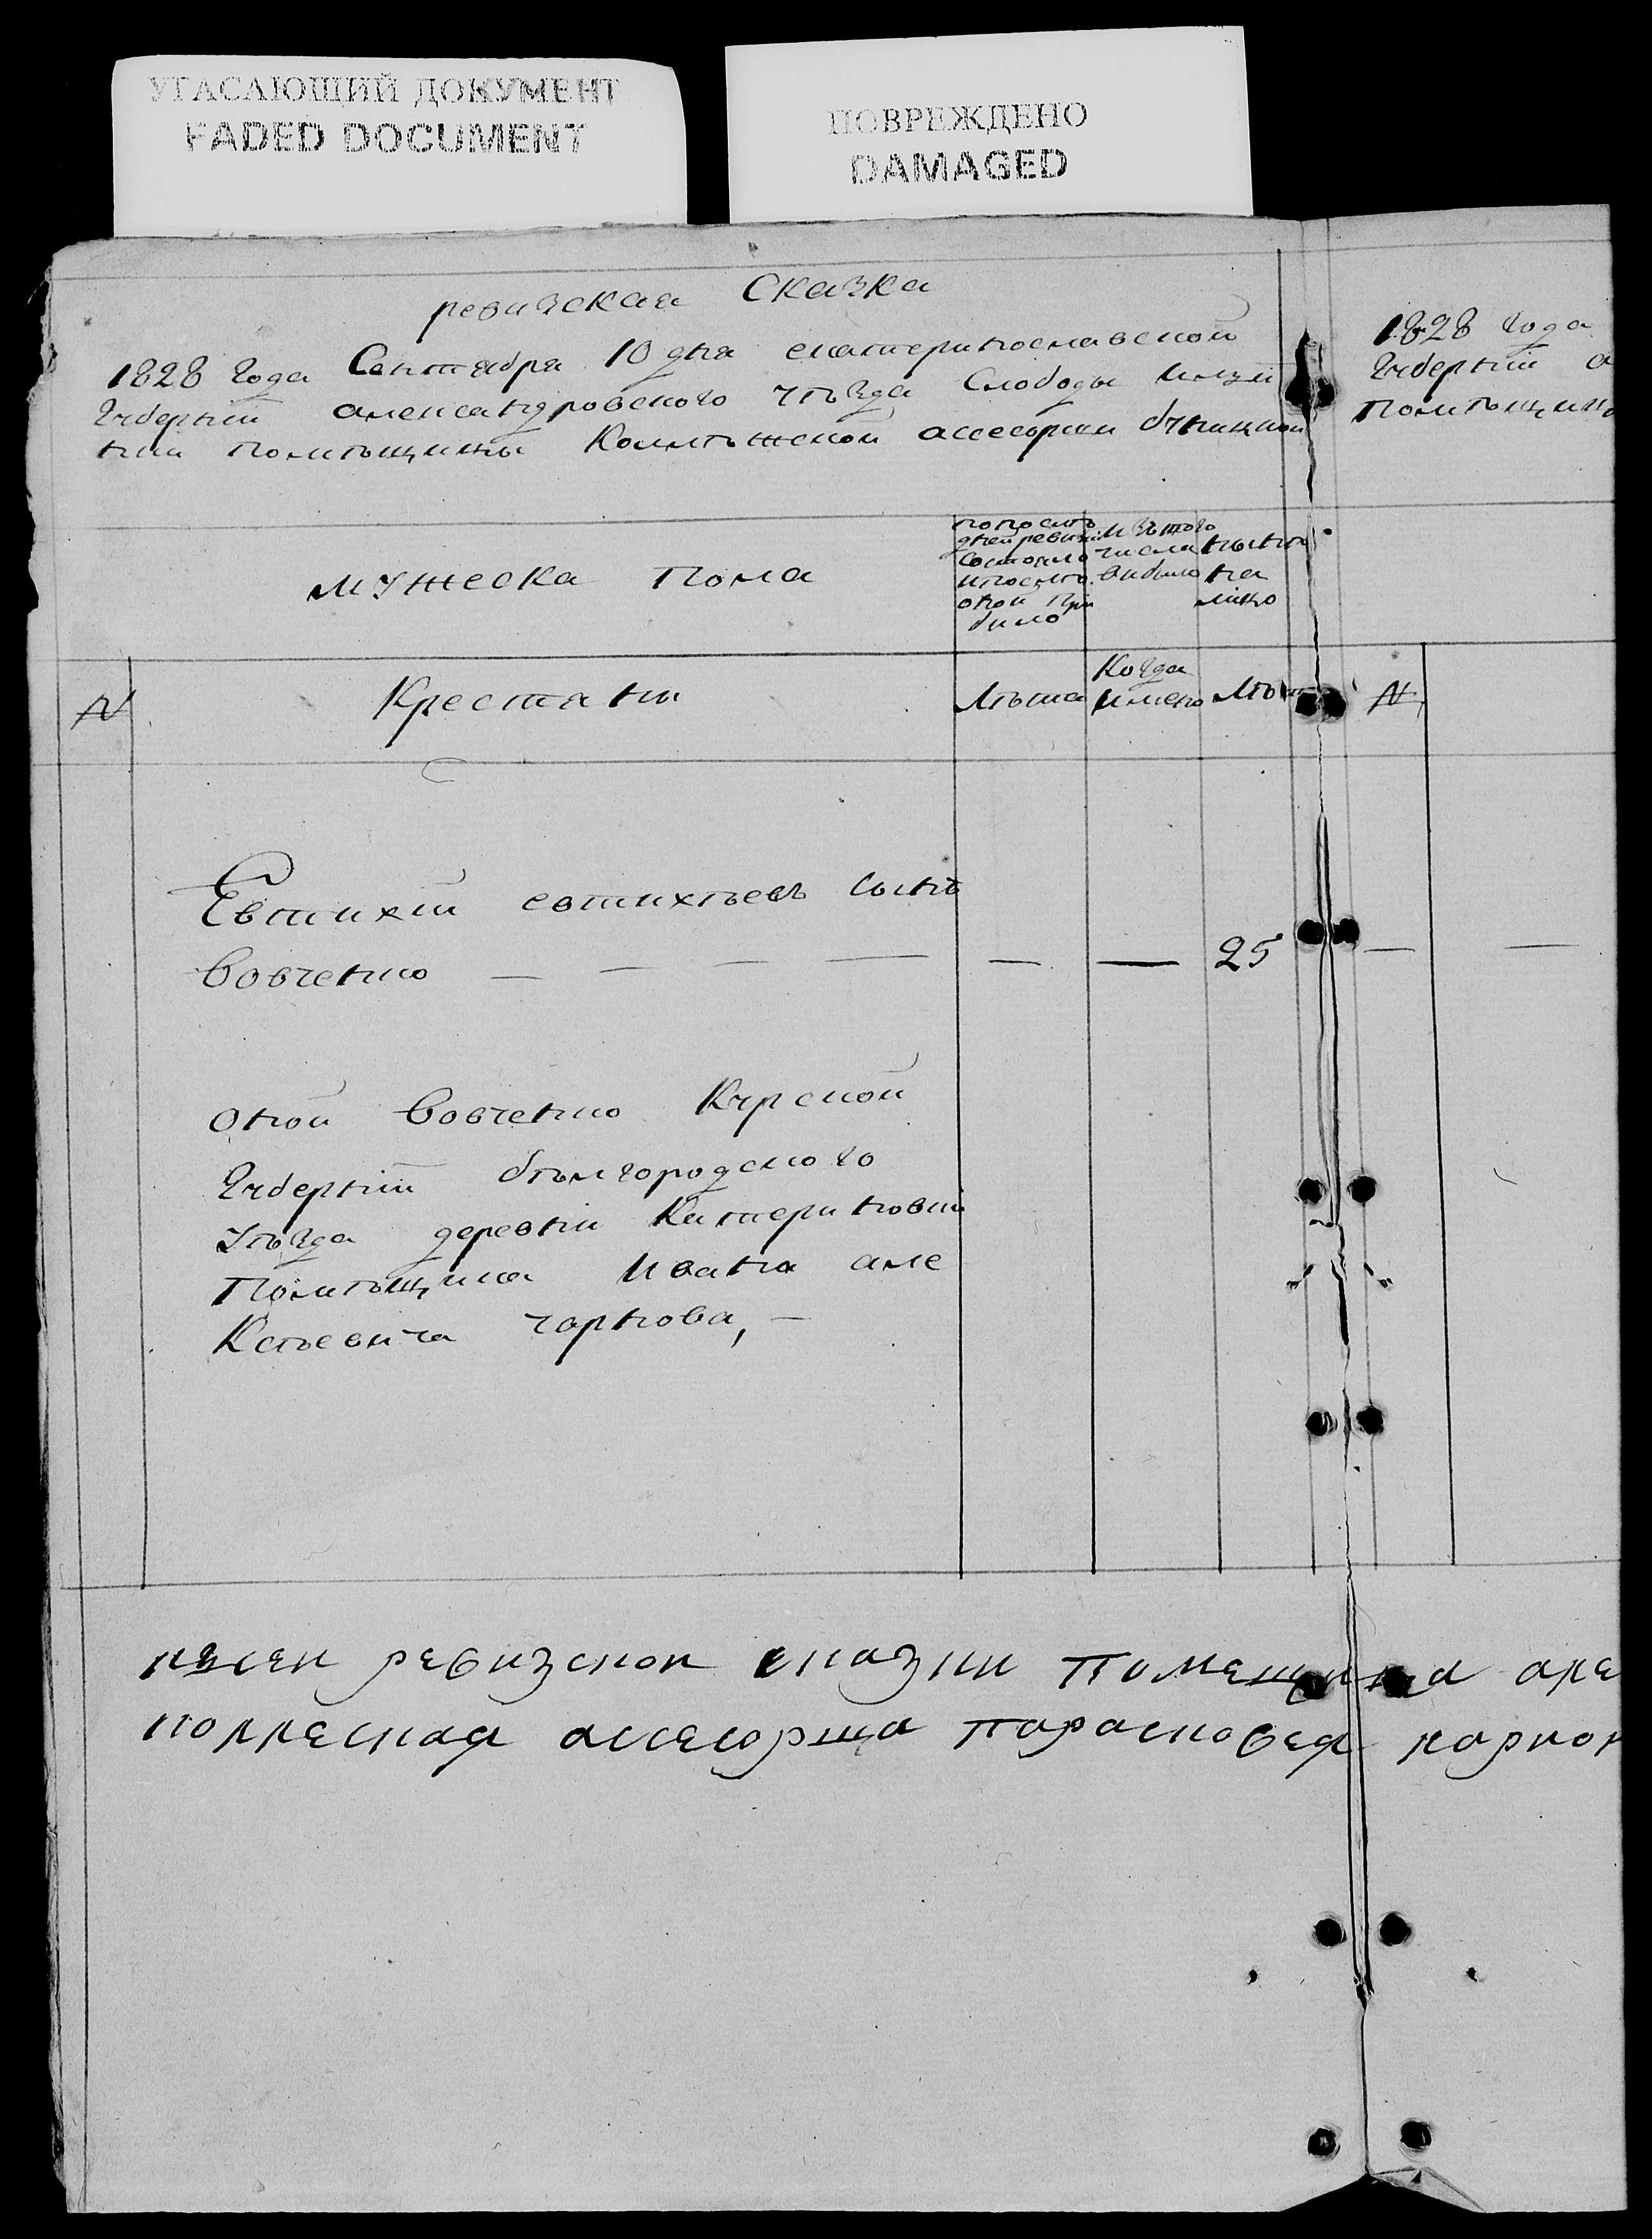 УГАСАЮЩИЙ ДОКУМЕНТ
FADED DOCUMENT
ПОВРЕЖДЕНО
DAMAGED
ревизская Сказка
1828 Года Сентября 10 дня екатеринославской
Губерніи александровского уѣзда Слободы
помѣщицы Коллѣжской ассесорши
1828 Года
Губерніи а
помѣщицы
мужеска пола
по послѣ
дней ревизіи
состояло
и послѣ
оной при
было
изъ того
числа
выбыло
нынѣ
на
лицо
N
Крестяны
Лѣта
Когда
имено
Лѣт
N
Евтихій евтихѣевъ сынъ
Вовченко — — — — — — 25 — —
оной Вовченко Курской
Губерніи бѣлгородского
уѣзда деревни Катериновки
Помѣщика Ивана але
Ксѣевича чарнова, —
ревизской сказки помещица
коллеская ассесорша парасковея